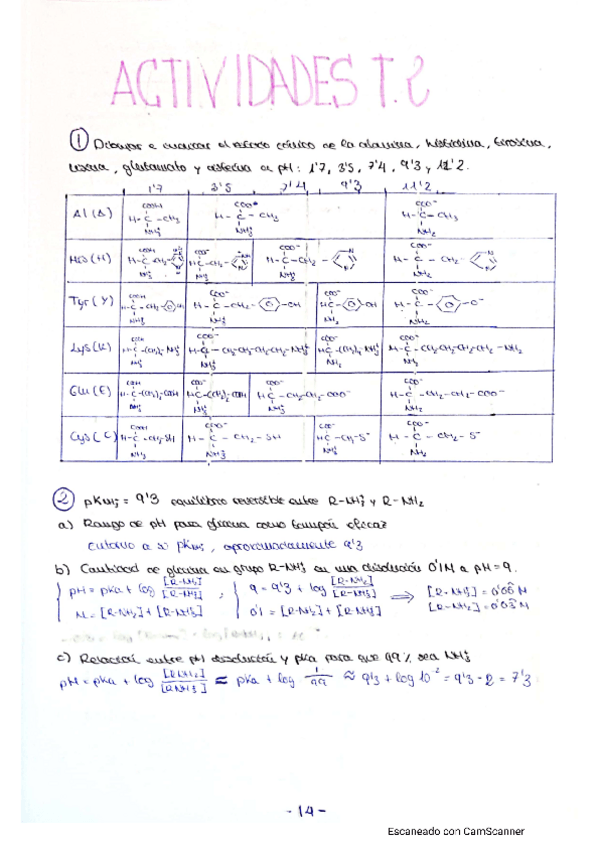 ACTIVIDADES T.2
① Dibujar e indicar el estado iónico de la alanina, histidina, tirosina,
lisina, glutamato y cisteína a pH: 1'7, 3'5, 7'4, 9'3 y 11'2.
1'7 3'5 7'4 9'3 11'2
Al (A) COOH H-C-CH3 NH3 COO H-C-CH3 NH3 COO- H-C-CH3 NH2
His (H) COOH H-C-CH2 NH3 COO- H-C-CH2 NH3 COO- H-C-CH2- NH3 COO- H-C-CH2- NH2
Tyr (Y) COOH H-C-CH2 OH NH3 COO- H-C-CH2- -OH NH3 COO- H-C -OH NH2 COO- H-C-CH2- -O- NH2
Lys (K) COOH H-C-(CH2)4 NH3 NH3 COO- H-C-CH2-CH2-CH2-CH2-NH3 NH3 COO- HC-(CH2)4 NH3 NH2 COO- H-C-CH2-CH2-CH2-CH2-NH2 NH2
Glu (E) COOH H-C-(CH2)2-COOH NH3 COO- H-C-(CH2)2-COOH NH3 COO- H-C-CH2-CH2-COO- NH3 COO- H-C-CH2-CH2-COO- NH2
Cys (C) COOH H-C-CH2-SH NH3 COO- H-C-CH2-SH NH3 COO- HC-CH2-S- NH3 COO- H-C-CH2-S- NH2
② pKNH3+ = 9'3 equilibrio reversible entre R-NH3+ y R-NH2
a) Rango de pH para glicina como tampón eficaz
Entorno a su pKNH3, aproximadamente 9'3
b) Cantidad de glicina en grupo R-NH3+ en una disolución 0'1 M a pH=9.
pH = pKa + log [R-NH2]/[R-NH3] , 9 = 9'3 + log [R-NH2]/[R-NH3] ⟹ [R-NH3] = 0'06 M
M = [R-NH2] + [R-NH3] 0'1 = [R-NH2] + [R-NH3] [R-NH2] = 0'03 M
c) Relación entre pH disolución y pKa para que 99% sea NH3+
pH = pKa + log [RNH2]/[RNH3] ≈ pKa + log 1/99 ≈ 9'3 + log 10-2 = 9'3 - 2 = 7'3
- 14 -
Escaneado con CamScanner